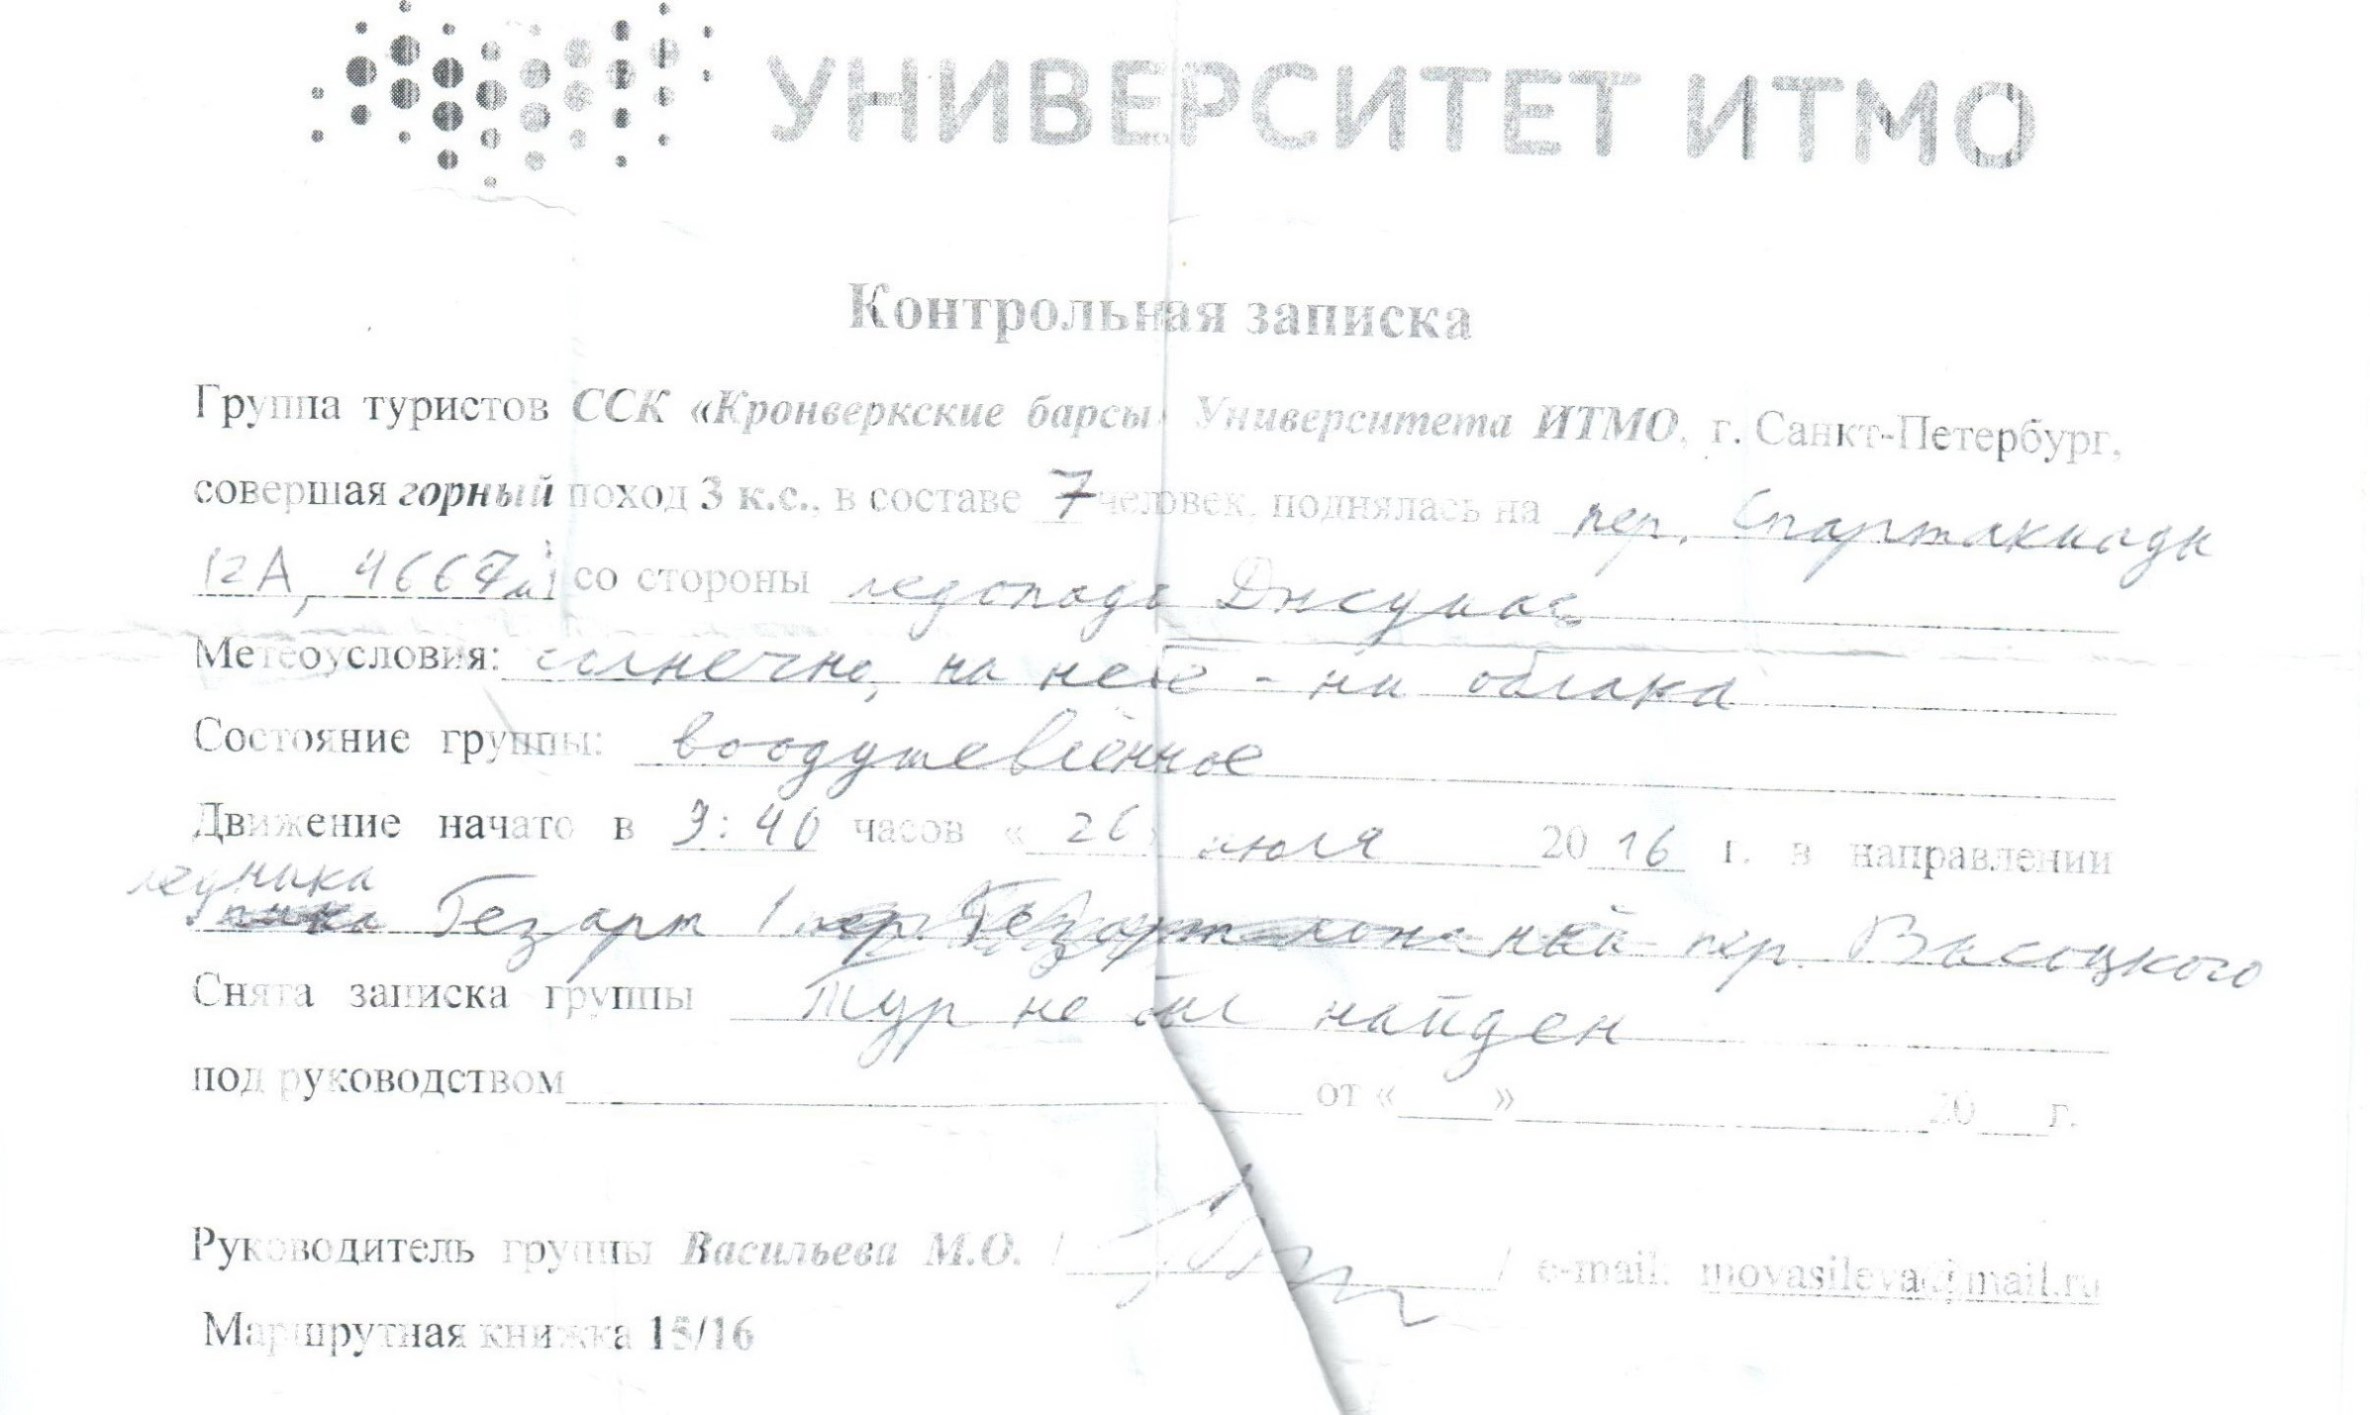 УНИВЕРСИТЕТ ИТМО
Контрольная записка
Группа туристов ССК «Кронверкские барсы» Университета ИТМО, г. Санкт-Петербург,
совершая горный поход 3 к.с., в составе 7 человек, поднялась на пер. Спартакиады
(2А, 4667м) со стороны ледопада
Метеоусловия: солнечно, на небе - ни облака
Состояние группы: воодушевлённое
Движение начато в 9:40 часов «26» июля 2016 г. в направлении
ледника
Гезарт пер. Высоцкого
Снята записка группы Тур не был найден
под руководством от « » 20 г.
Руководитель группы Васильева М.О. / / e-mail: movasileva@mail.ru
Маршрутная книжка 15/16